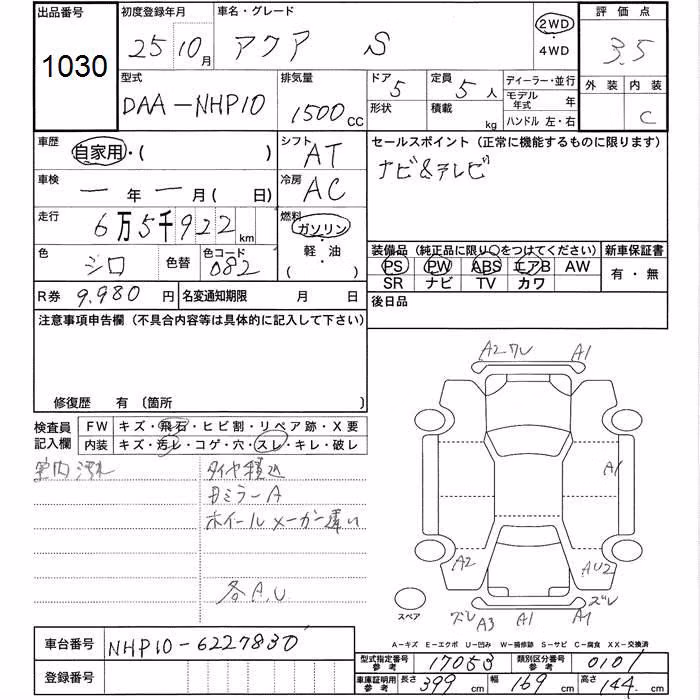 出品番号 初度登録年月 車名・グレード 評価点
1030 25 10月 アクア S 2WD 3.5
4WD
型式 排気量 ドア 5 定員 5人 ディーラー・並行 外装 内装
DAA-NHP10 1500cc 形状 積載 kg モデル年式 年 C
ハンドル 左・右
車歴 自家用・( ) シフト AT セールスポイント(正常に機能するものに限ります)
車検 一年一月( 日) 冷房 AC ナビ&テレビ
走行 6万5千922km 燃料 ガソリン・軽・油( )
色 シロ 色替 色コード 082 装備品(純正品に限り○をつけてください) 新車保証書
PS PW ABS エアB AW 有・無
SR ナビ TV カワ
R券 9.980円 名変通知期限 月 日 後日品
注意事項申告欄(不具合内容等は具体的に記入して下さい)
修復歴 有(箇所
検査員記入欄 FW キズ・飛石・ヒビ割・リペア跡・X要
内装 キズ・汚レ・コゲ・穴・スレ・キレ・破レ
室内汚れ タイヤ積込
ミラーA
ホイールメーカー違い
各A,U
A2 ワレ A1
A1
A2 AU2
スペア ズレ A3 A1 A1 ズレ
A-キズ E-エクボ U-凹み W-補修跡 S-サビ C-腐食 XX-交換済
車台番号 NHP10-6227830 型式指定番号 参考 17053 類別区分番号 参考 0101
登録番号 車庫証明用 参考 長さ 399cm 幅 169cm 高さ 144cm